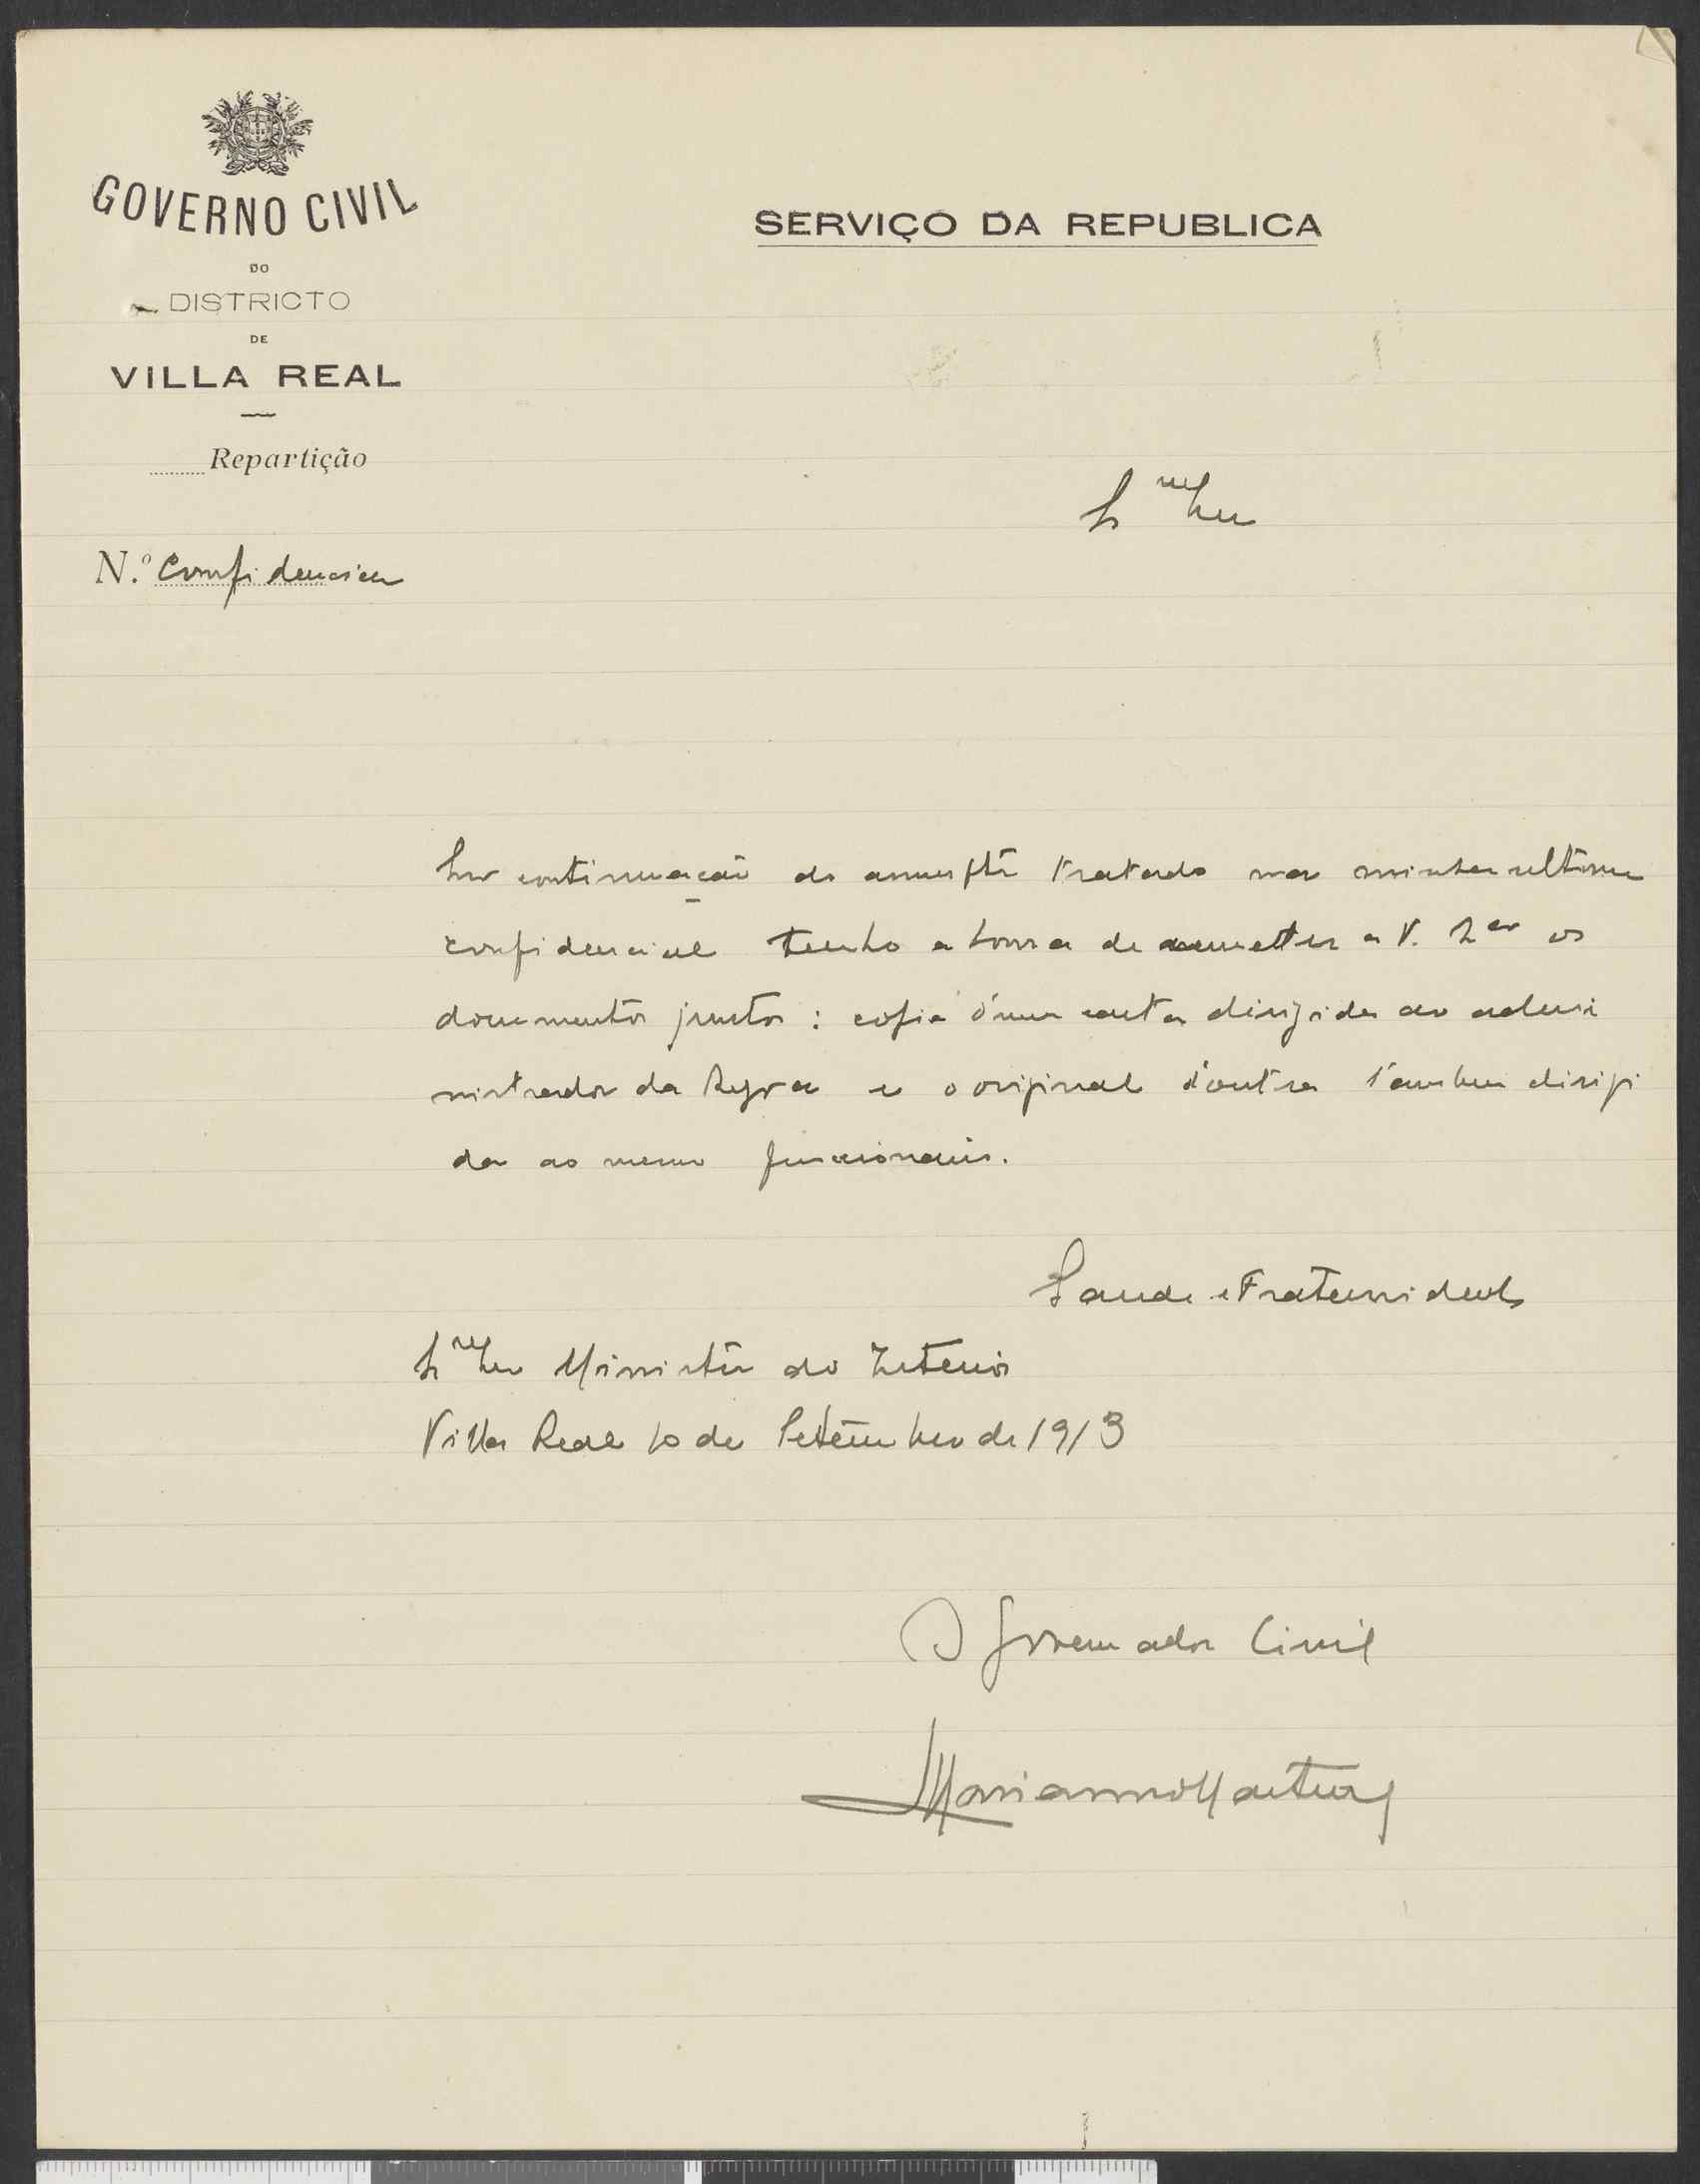 GOVERNO CIVIL
DO
DISTRICTO
DE
VILLA REAL
Repartição
N.º Confidencial
SERVIÇO DA REPUBLICA
Em continuação do assumpto tratado na minha ultima
confidencial tenho a honra de remetter a V. Exª os
documentos juntos: copia d'uma carta dirigida ao admi
nistrador da Regoa e o original d'outra tambem dirigi
da ao mesmo funcionario.
Saude e Fraternidade
Ministro do Interior
Villa Real 10 de Setembro de 1913
O Governador Civil
Marianno Martins